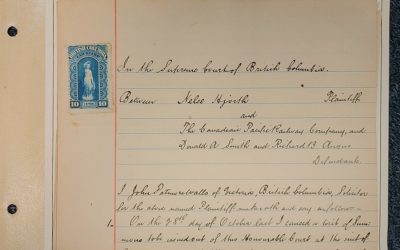 BRITISH COLUMBIA
10 10
In the Supreme Court of British Columbia.
Between Nelse Hjorth Plaintiff
and
The Canadian Pacific Railway Company, and
Donald A Smith and Richard B Angus
Defendants
I John Patmore Walls of Victoria, British Columbia, Solicitor
for the above named Plaintiff make oath and say as follows:-
1. On the 28th day of October last I caused a writ of Sum-
mons to be issued out of this Honourable Court at the suit of